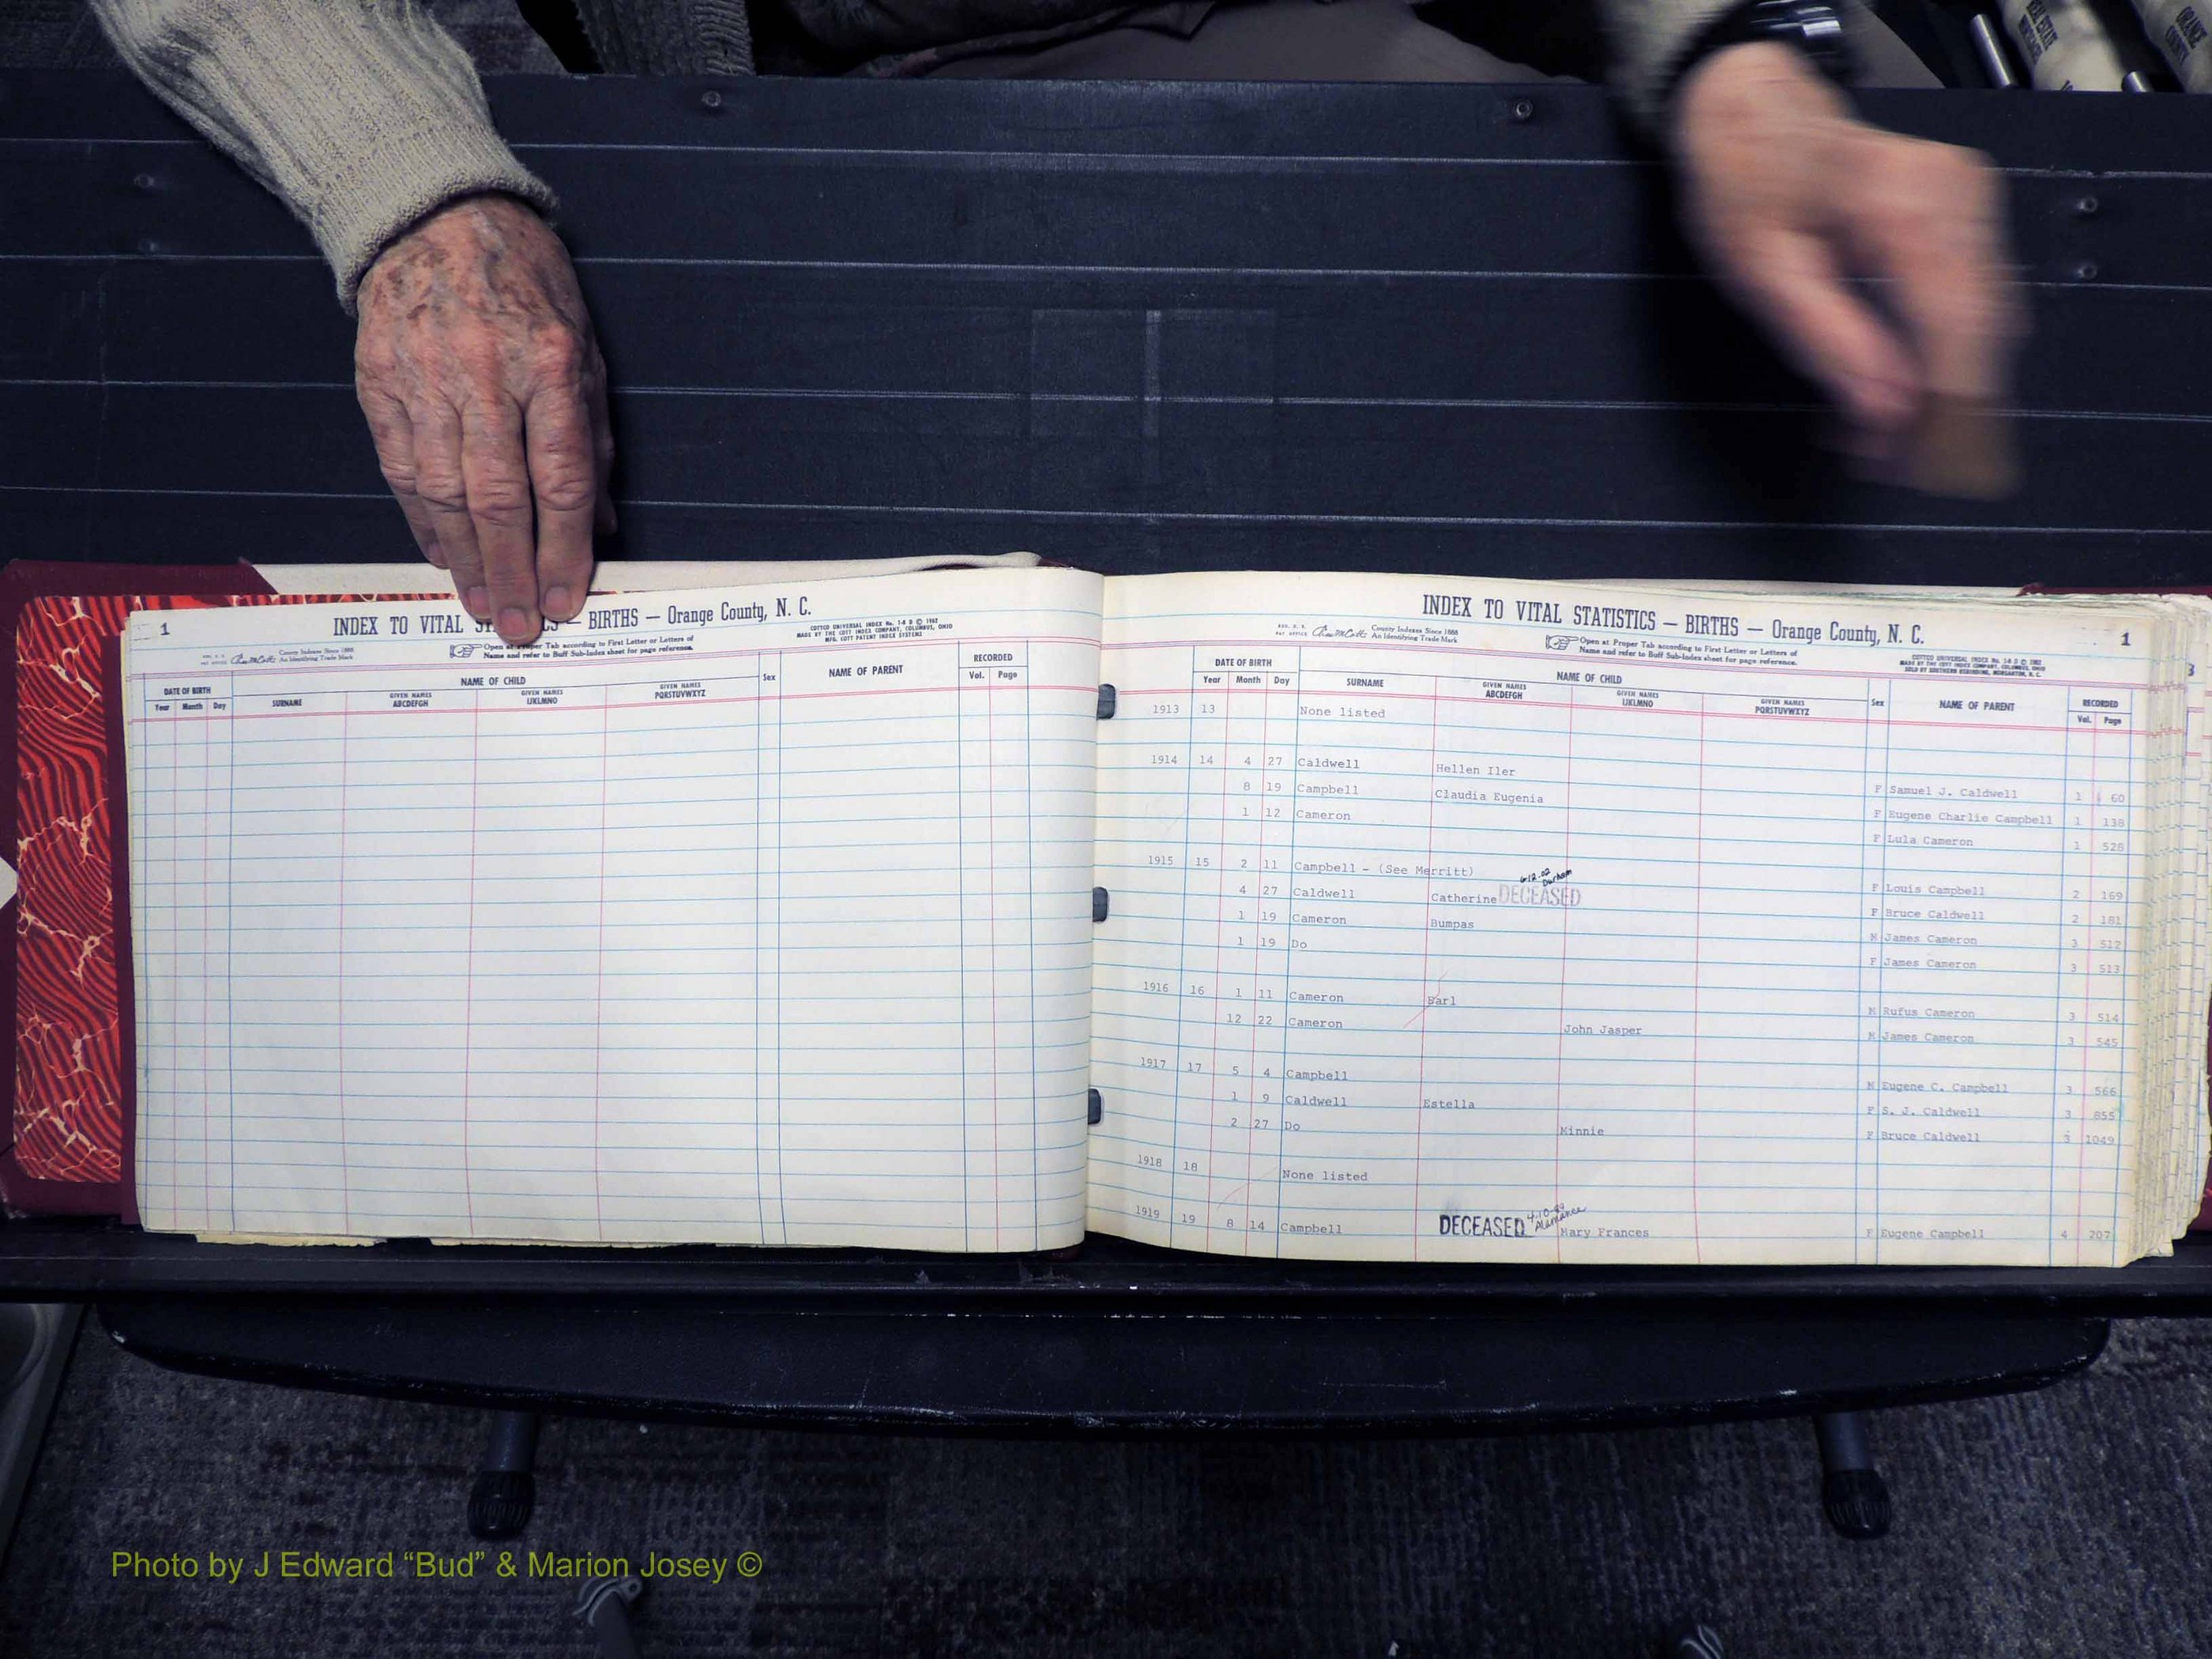 REAL ESTATE
ORANGE COUNTY
1
INDEX TO VITAL — BIRTHS — Orange County, N. C.
COTTCO UNIVERSAL INDEX No. 1-8 D © 1962
MADE BY THE COTT INDEX COMPANY, COLUMBUS, OHIO
MFG. COTT PATENT INDEX SYSTEMS
County Indexes Since 1888
An Identifying Trade Mark
Open at Proper Tab according to First Letter or Letters of
Name and refer to Buff Sub-Index sheet for page reference.
DATE OF BIRTH NAME OF CHILD Sex NAME OF PARENT RECORDED
Year Month Day SURNAME GIVEN NAMES ABCDEFGH GIVEN NAMES IJKLMNO GIVEN NAMES PQRSTUVWXYZ Vol. Page
INDEX TO VITAL STATISTICS — BIRTHS — Orange County, N. C.
1
County Indexes Since 1888
An Identifying Trade Mark
Open at Proper Tab according to First Letter or Letters of
Name and refer to Buff Sub-Index sheet for page reference.
COTTCO UNIVERSAL INDEX No. 1-8 D © 1962
MADE BY THE COTT INDEX COMPANY, COLUMBUS, OHIO
DATE OF BIRTH NAME OF CHILD Sex NAME OF PARENT RECORDED
Year Month Day SURNAME GIVEN NAMES ABCDEFGH GIVEN NAMES IJKLMNO GIVEN NAMES PQRSTUVWXYZ Vol. Page
1913 13 None listed
1914 14 4 27 Caldwell Hellen Iler F Samuel J. Caldwell 1 60
8 19 Campbell Claudia Eugenia F Eugene Charlie Campbell 1 138
1 12 Cameron F Lula Cameron 1 528
1915 15 2 11 Campbell - (See Merritt) F Louis Campbell 2 169
4 27 Caldwell Catherine DECEASED 6-12-02 Durham F Bruce Caldwell 2 181
1 19 Cameron Bumpas M James Cameron 3 512
1 19 Do F James Cameron 3 513
1916 16 1 11 Cameron Earl M Rufus Cameron 3 514
12 22 Cameron John Jasper M James Cameron 3 545
1917 17 5 4 Campbell M Eugene C. Campbell 3 566
1 9 Caldwell Estella F S. J. Caldwell 3 855
2 27 Do Minnie F Bruce Caldwell 3 1049
1918 18 None listed
1919 19 8 14 Campbell DECEASED Alamance Mary Frances F Eugene Campbell 4 207
Photo by J Edward “Bud” & Marion Josey ©